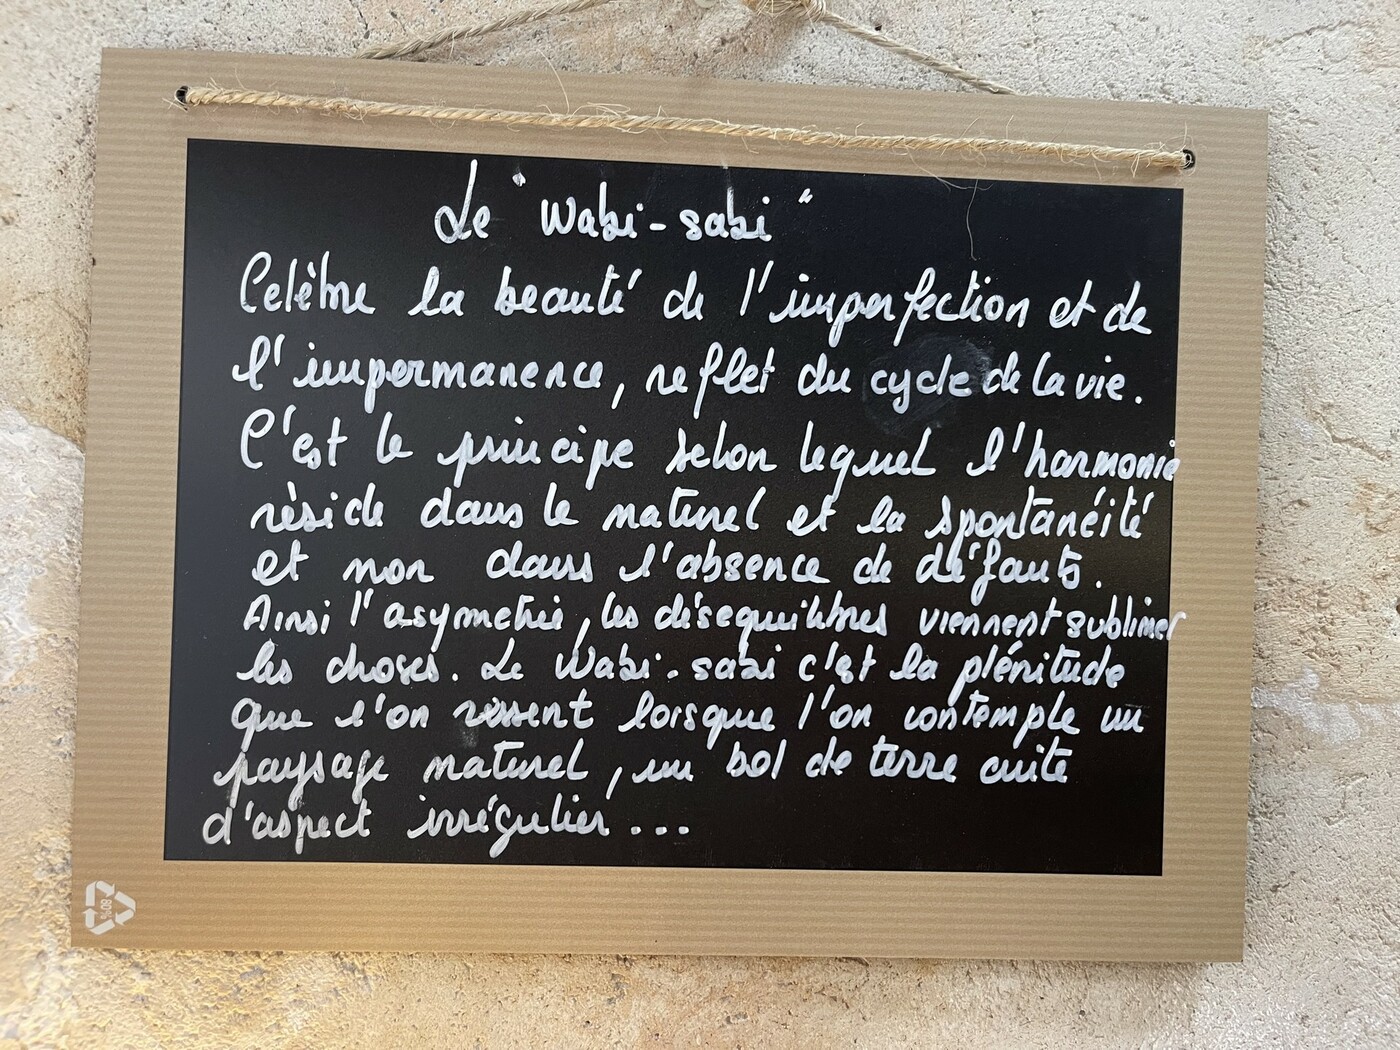 Le "Wabi-sabi"
Celèbre la beauté de l'imperfection et de
l'impermanence, reflet du cycle de la vie.
C'est le principe selon lequel l'harmonie
rèside dans le naturel et la spontanéité
et non dans l'absence de défauts.
Ainsi l'asymetrie, les déséquilibres viennent sublimer
les choses. Le Wabi-sabi c'est la plénitude
que l'on ressent lorsque l'on contemple un
paysage naturel, un bol de terre cuite
d'aspect irrégulier...
80%